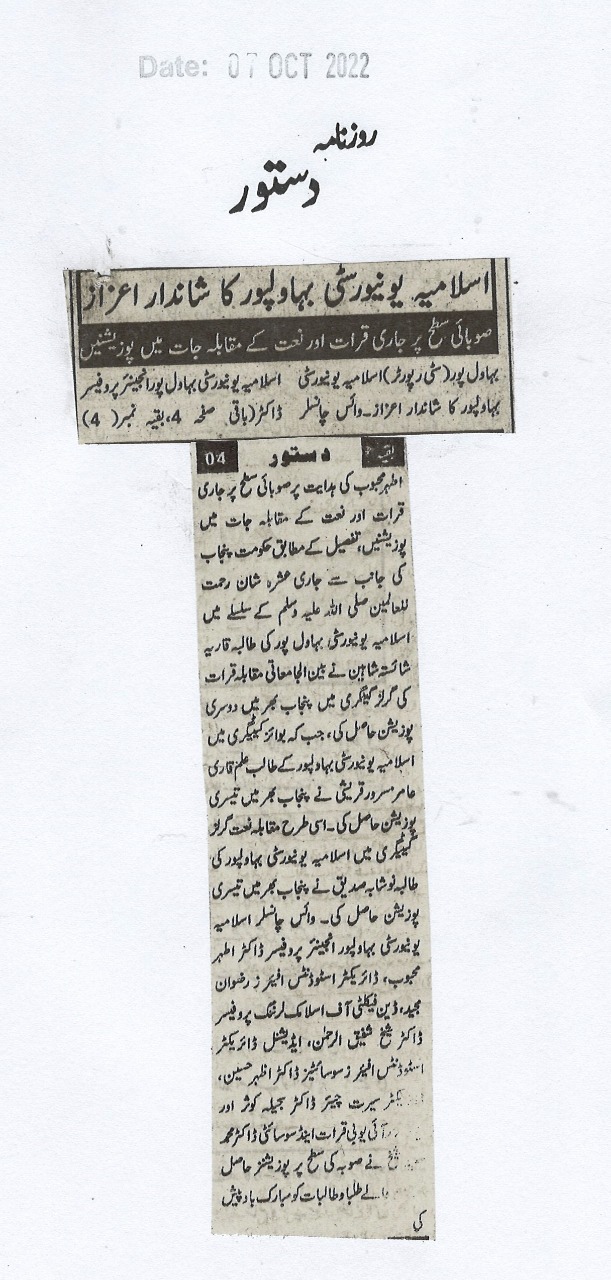 Date: 07 OCT 2022
روزنامہ
دستور
اسلامیہ یونیورسٹی بہاولپور کا شاندار اعزاز
صوبائی سطح پر جاری قرات اور نعت کے مقابلہ جات میں پوزیشنیں
بہاول پور (سٹی رپورٹر) اسلامیہ یونیورسٹی
بہاولپور کا شاندار اعزاز۔ وائس چانسلر
اسلامیہ یونیورسٹی بہاول پور انجینئر پروفیسر
ڈاکٹر (باقی صفحہ 4، بقیہ نمبر (4)
بقیہ دستور 04
اطہر محبوب کی ہدایت پر صوبائی سطح پر جاری
قرات اور نعت کے مقابلہ جات میں
پوزیشنیں، تفصیل کے مطابق حکومت پنجاب
کی جانب سے جاری عشرہ شان رحمت
للعالمین صلی اللہ علیہ وسلم کے سلسلے میں
اسلامیہ یونیورسٹی بہاول پور کی طالبہ قاریہ
شائستہ شاہین نے بین الجامعاتی مقابلہ قرات
کی گرلز کیٹگری میں پنجاب بھر میں دوسری
پوزیشن حاصل کی، جب کہ بوائز کیٹیگری میں
اسلامیہ یونیورسٹی بہاولپور کے طالب علم قاری
عامر سرور قریشی نے پنجاب بھر میں تیسری
پوزیشن حاصل کی۔ اسی طرح مقابلہ نعت گرلز
کیٹیگری میں اسلامیہ یونیورسٹی بہاولپور کی
طالبہ نوشابہ صدیق نے پنجاب بھر میں تیسری
پوزیشن حاصل کی۔ وائس چانسلر اسلامیہ
یونیورسٹی بہاولپور انجینئر پروفیسر ڈاکٹر اطہر
محبوب، ڈائریکٹر اسٹوڈنٹس افیئرز رضوان
مجید، ڈین فیکلٹی آف اسلامک لرننگ پروفیسر
ڈاکٹر شیخ شفیق الرحمٰن، ایڈیشنل ڈائریکٹر
اسٹوڈنٹس افیئرز سوسائٹیز ڈاکٹر اظہر حسین،
سیرت چیئر ڈاکٹر جمیلہ کوثر اور
آئی یو بی قرات اینڈ سوسائٹی ڈاکٹر محمد
نے صوبہ کی سطح پر پوزیشنز حاصل
طلبا و طالبات کو مبارک باد پیش
کی